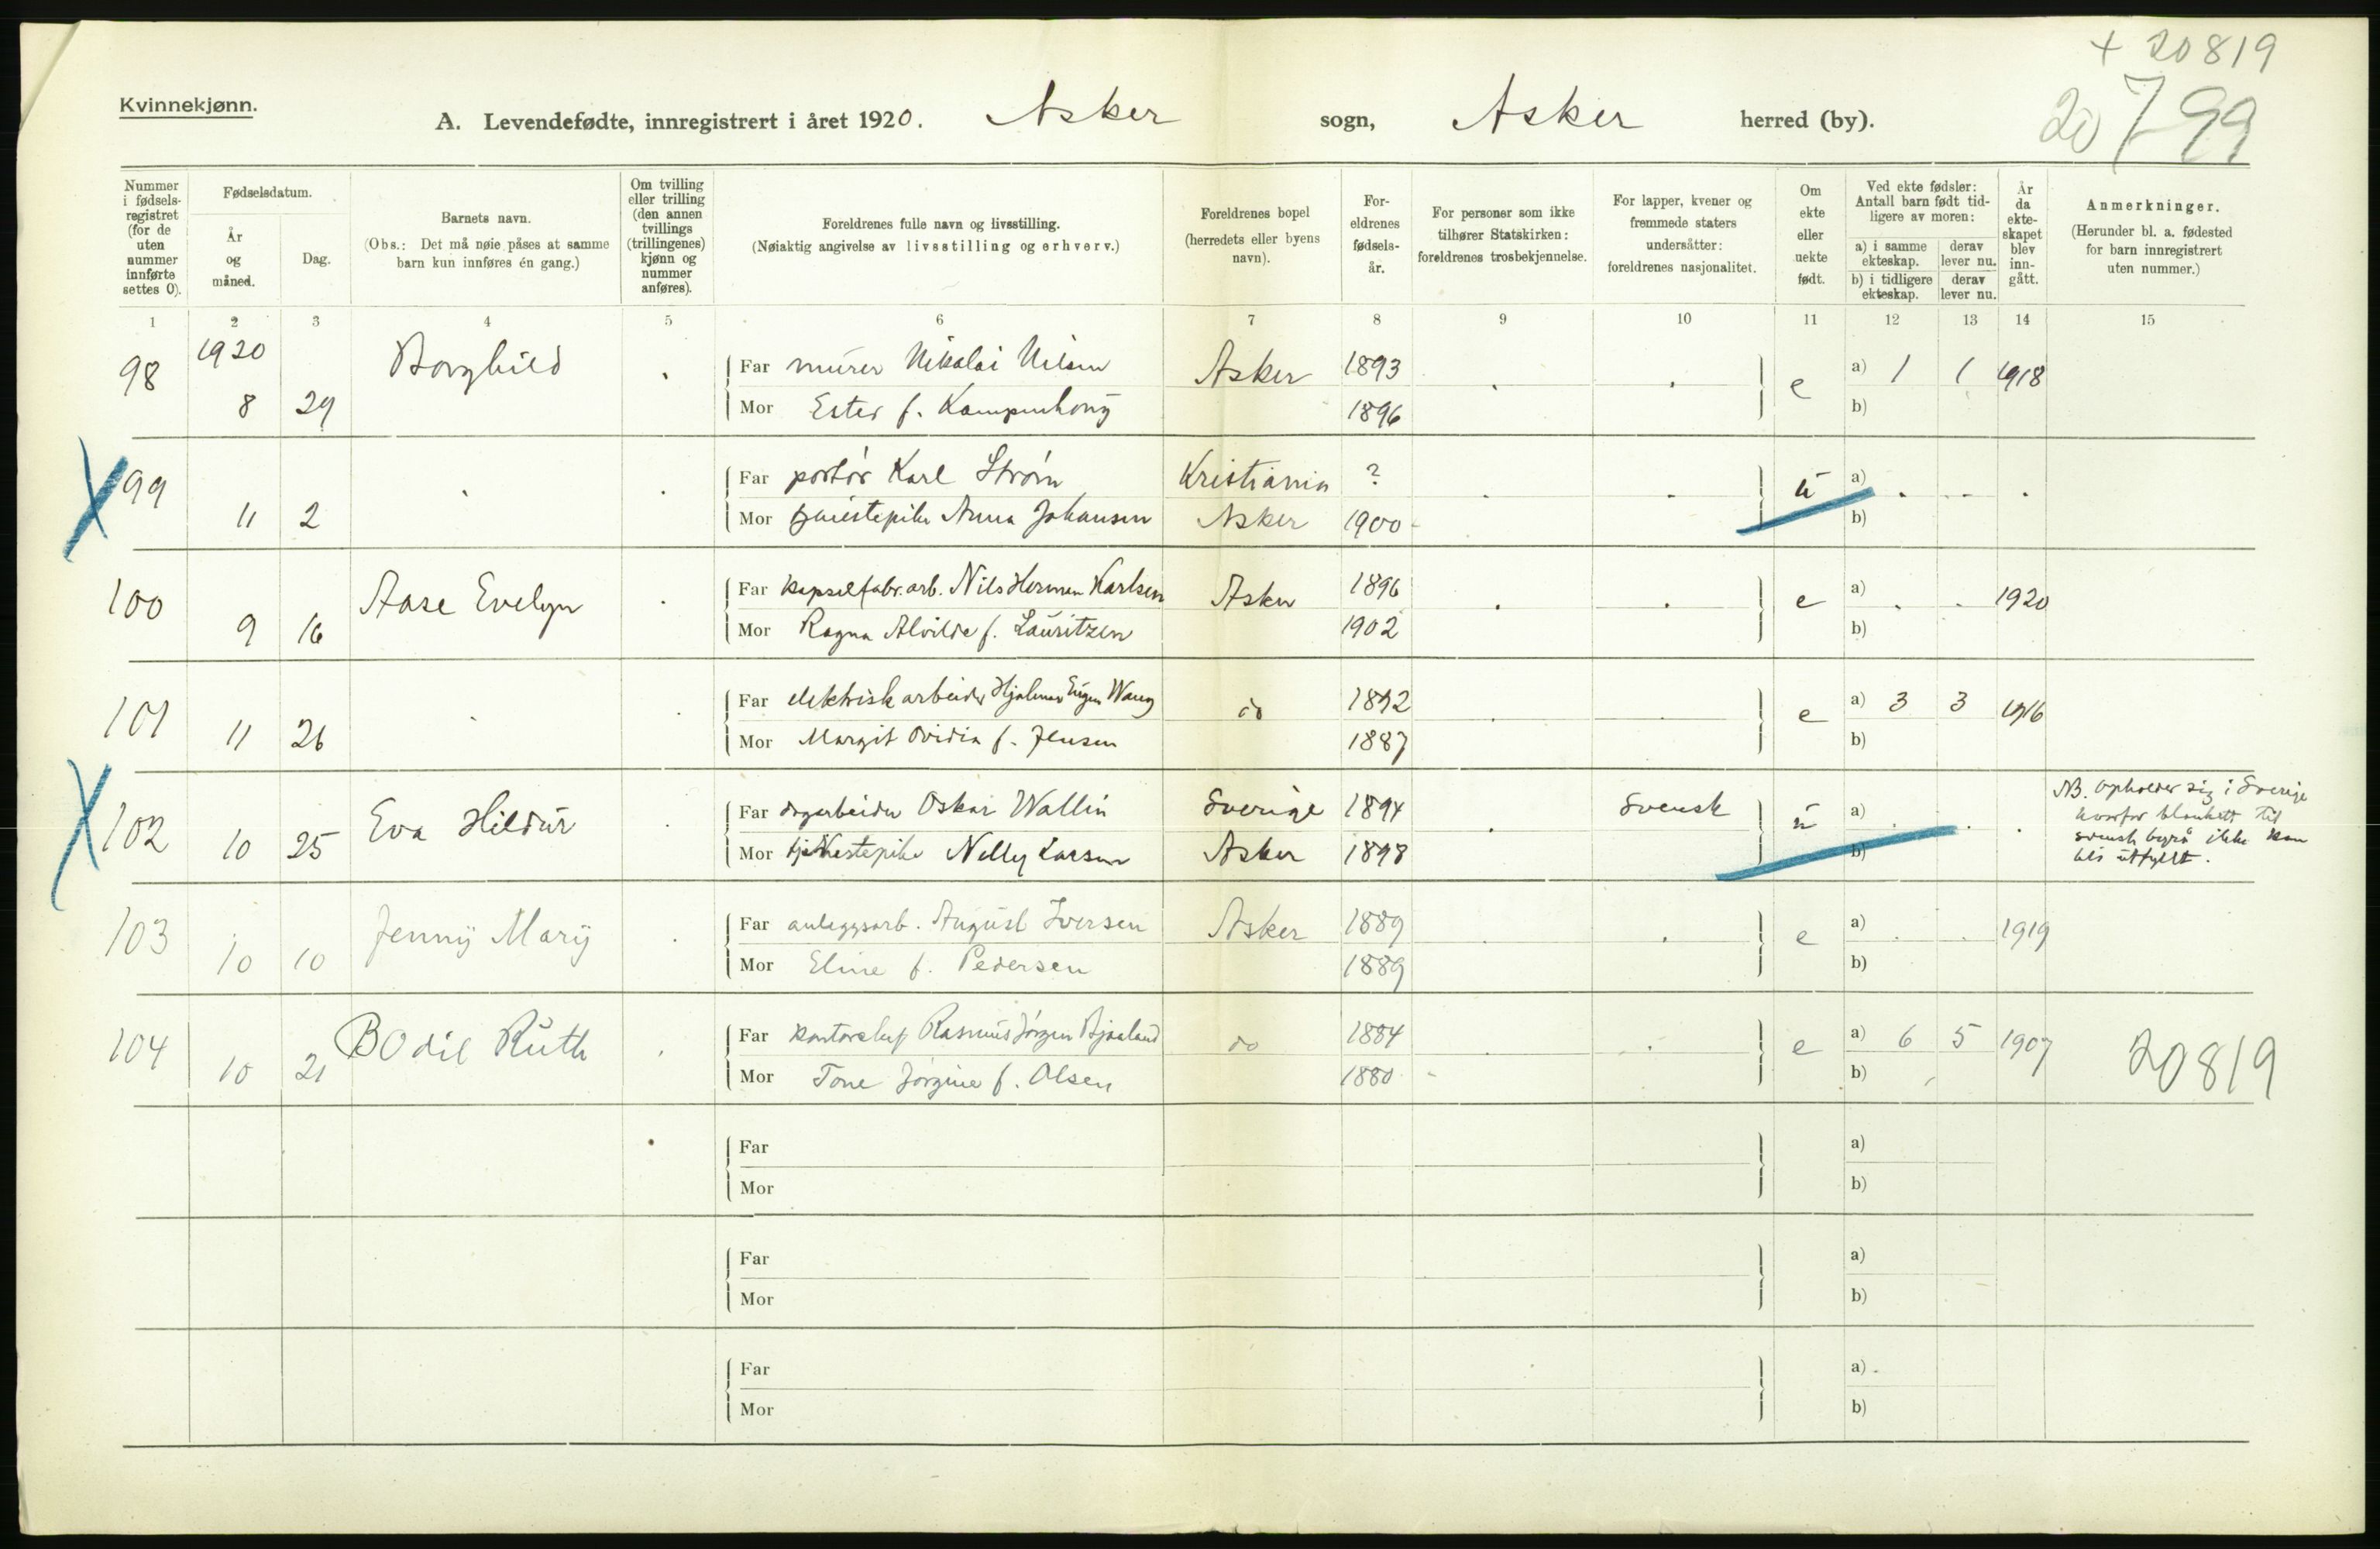 + 20819
20799
Kvinnekjønn.
A. Levendefødte, innregistrert i året 1920. Asker sogn, Asker herred (by).
Nummer i fødsels-registret (for de uten nummer innførte settes 0).
Fødselsdatum.
År og måned.
Dag.
Barnets navn.
(Obs.: Det må nøie påses at samme barn kun innføres én gang.)
Om tvilling eller trilling (den annen tvillings (trillingenes) kjønn og nummer anføres).
Foreldrenes fulle navn og livsstilling.
(Nøiaktig angivelse av livsstilling og erhverv.)
Foreldrenes bopel (herredets eller byens navn).
For-eldrenes fødsels-år.
For personer som ikke tilhører Statskirken: foreldrenes trosbekjennelse.
For lapper, kvener og fremmede staters undersåtter: foreldrenes nasjonalitet.
Om ekte eller uekte født.
Ved ekte fødsler: Antall barn født tid-ligere av moren:
a) i samme ekteskap. derav lever nu.
b) i tidligere ekteskap. derav lever nu.
År da ekte-skapet blev inn-gått.
Anmerkninger.
(Herunder bl. a. fødested for barn innregistrert uten nummer.)
1 2 3 4 5 6 7 8 9 10 11 12 13 14 15
98 1920 8 29 Borghild . Far murer Nikolai Nilsen Asker 1893 . . e a) 1 1 1918
Mor Ester f. 1896 b)
99 11 2 . . Far portør Karl Strøm Kristiania ? . . u a) . . .
Mor tjenestepike Anna Johansen Asker 1900 b)
100 9 16 Aase Evelyn . Far kapselfabr.arb. Nils Herman Karlsen Asker 1896 . . e a) . . 1920
Mor Ragna Alvilde f. Lauritzen 1902 b)
101 11 26 . . Far elektrisk arbeider Hjalmar Eugen Wang do 1892 . . e a) 3 3 1916
Mor Margit Ovidia f. Jensen 1887 b)
102 10 25 Eva Hildur . Far dagarbeider Oskar Wallin Sverige 1894 . Svensk u a) . . .
Mor tjenestepike Nelly Larsen Asker 1898 b)
NB. Opholder sig i Sverige
hvorfor blankett til
svensk byrå ikke kan
bli utfyllt.
103 10 10 Jenny Mary . Far anleggsarb. August Iversen Asker 1889 . . e a) . . 1919
Mor Eline f. Pedersen 1889 b)
104 10 21 Bodil Ruth . Far kontorchef Rasmus Jørgen Bjaaland do 1884 . . e a) 6 5 1907
Mor Tone Jørgine f. Olsen 1880 b)
20819
Far a)
Mor b)
Far a)
Mor b)
Far a)
Mor b)